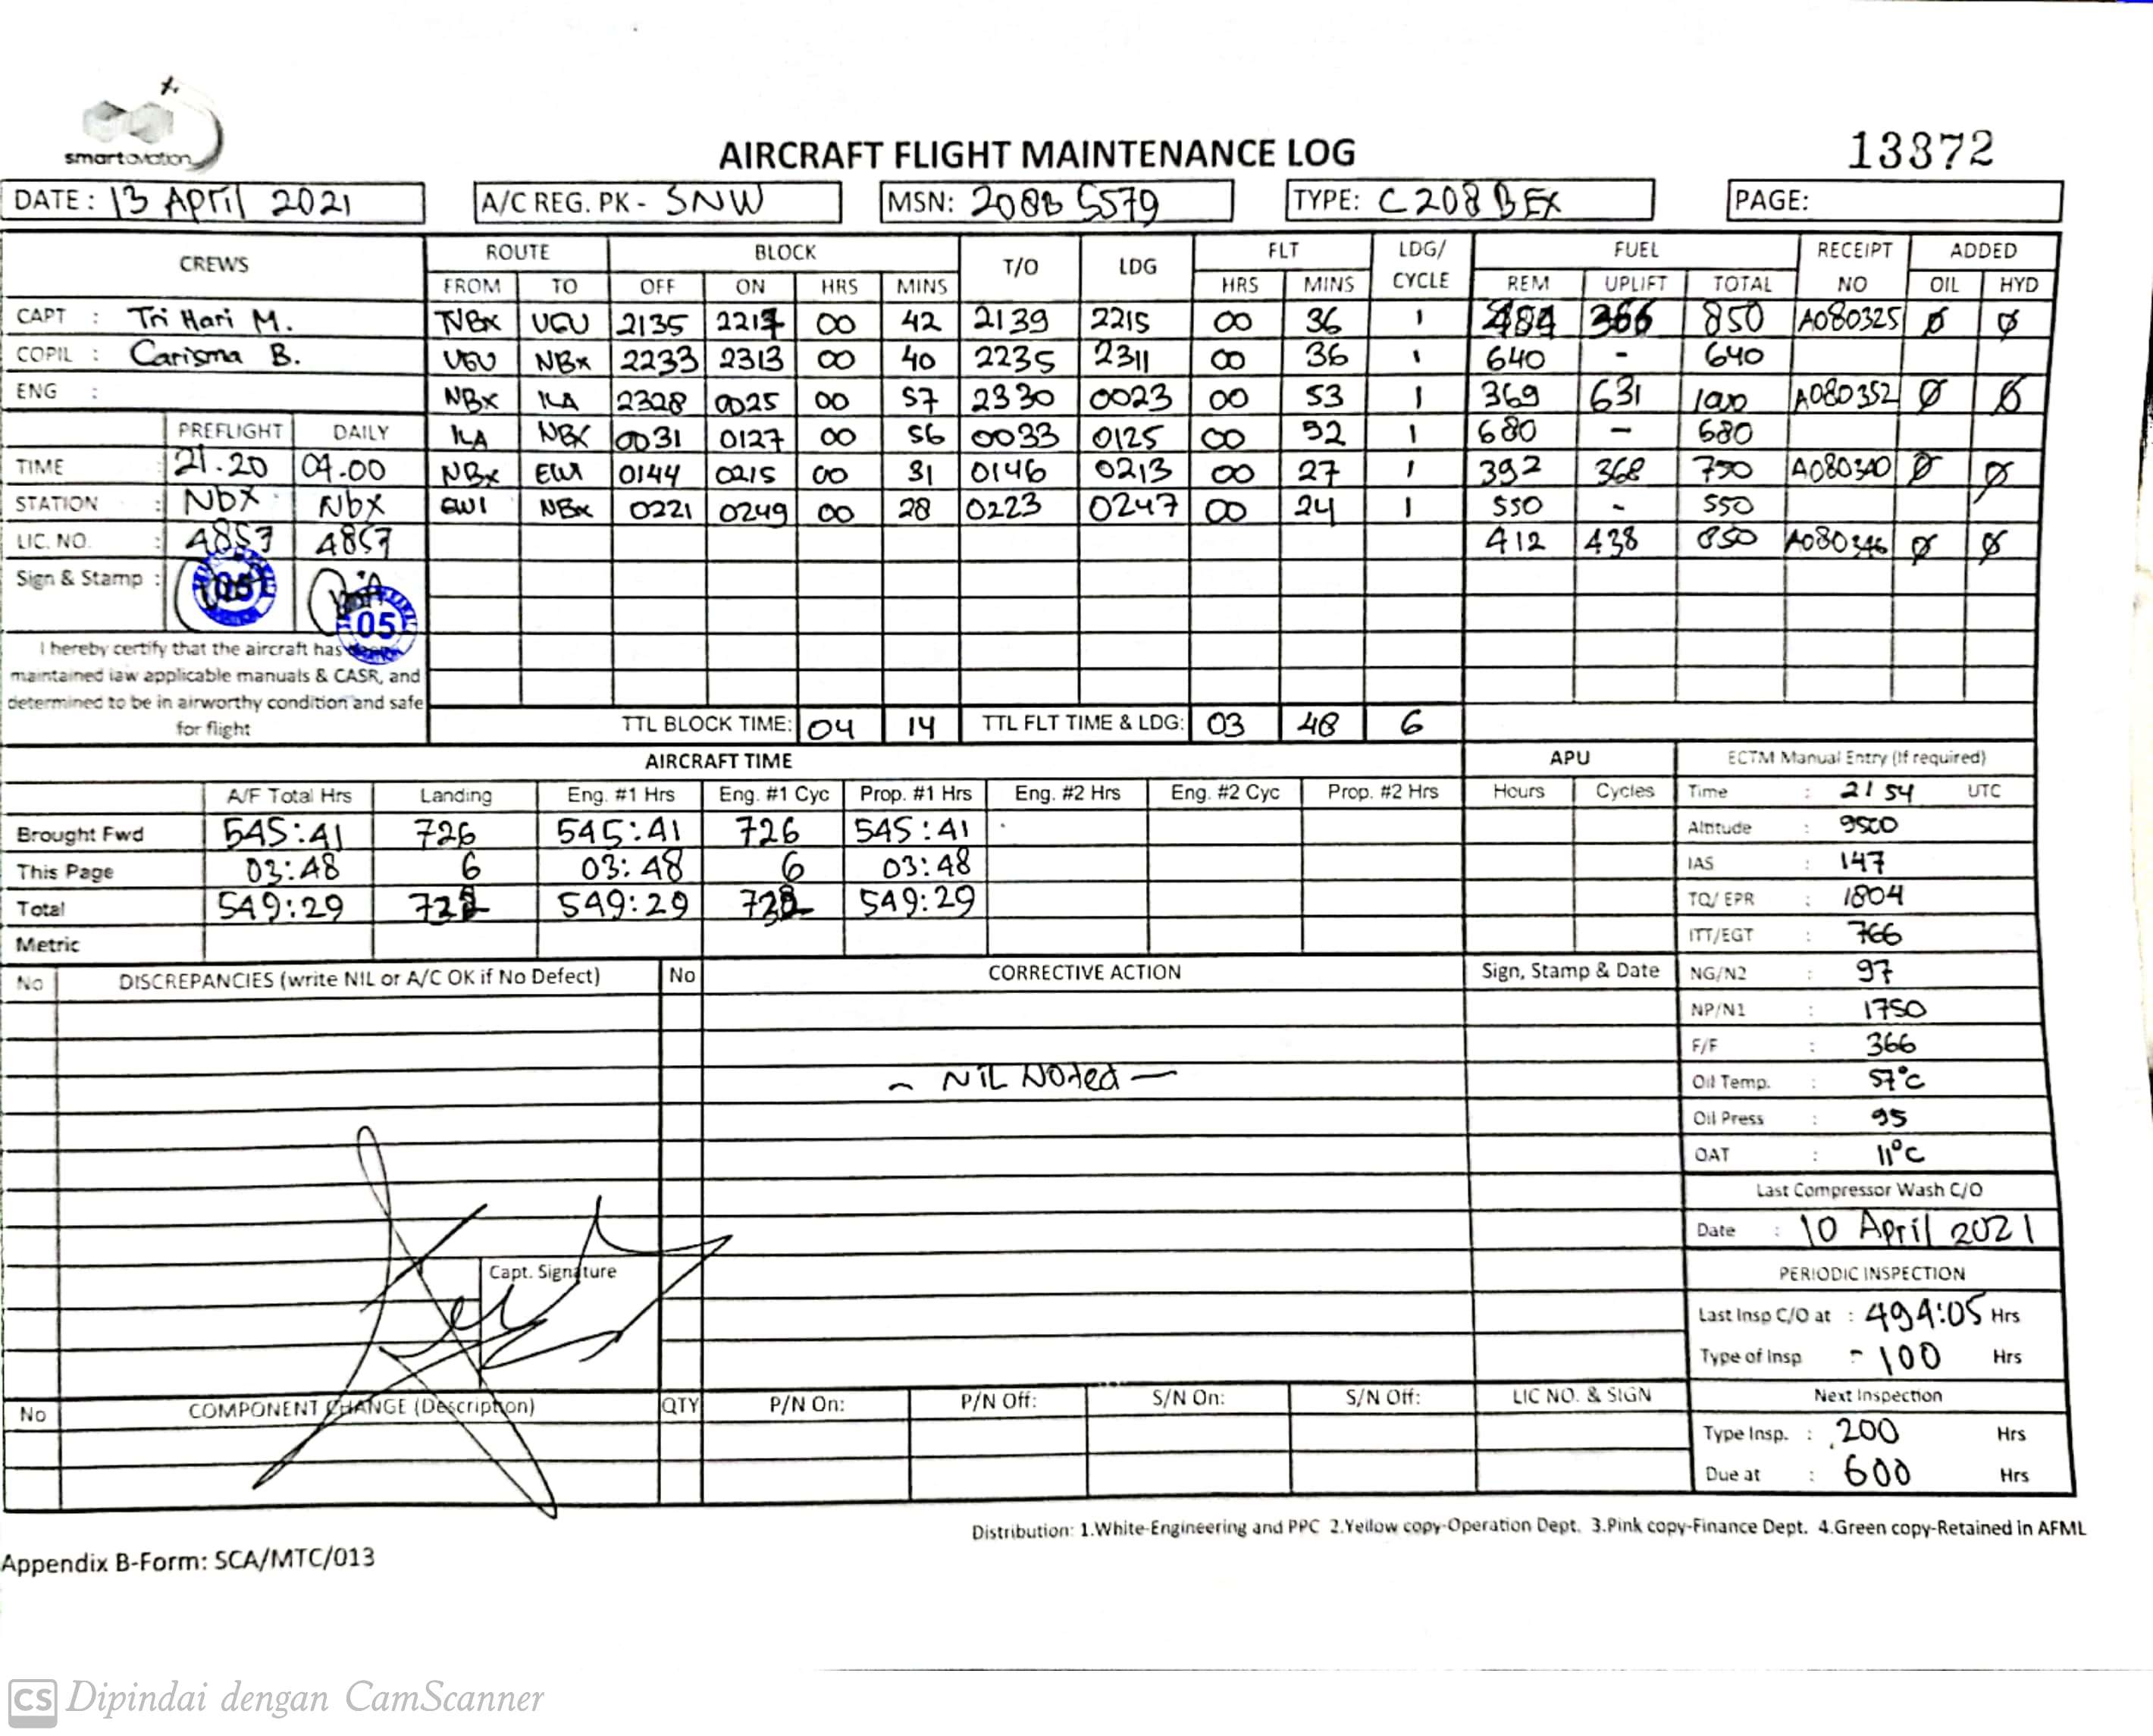 smart aviation
AIRCRAFT FLIGHT MAINTENANCE LOG
13372
DATE : 13 April 2021 A/C REG. PK - SNW MSN: 208B 5579 TYPE: C 208 B EX PAGE:
CREWS ROUTE BLOCK T/O LDG FLT LDG/ CYCLE FUEL RECEIPT NO ADDED
FROM TO OFF ON HRS MINS HRS MINS REM UPLIFT TOTAL OIL HYD
CAPT : Tri Hari M. NBx UGU 2135 2217 00 42 2139 2215 00 36 1 484 366 850 A080325 Ø Ø
COPIL : Carisma B. UGU NBx 2233 2313 00 40 2235 2311 00 36 1 640 - 640
ENG : NBx ILA 2328 0025 00 57 2330 0023 00 53 1 369 631 1000 A080352 Ø Ø
PREFLIGHT DAILY ILA NBX 0031 0127 00 56 0033 0125 00 52 1 680 - 680
TIME : 21.20 09.00 NBx EWI 0144 0215 00 31 0146 0213 00 27 1 392 368 750 Ø Ø
STATION : NbX NbX EWI NBx 0221 0249 00 28 0223 0247 00 24 1 550 - 550
LIC. NO. : 4857 4857 412 438 850 A080346 Ø Ø
Sign & Stamp : 05 05
I hereby certify that the aircraft has been
maintained iaw applicable manuals & CASR, and
determined to be in airworthy condition and safe
for flight
TTL BLOCK TIME: 04 14 TTL FLT TIME & LDG: 03 48 6
AIRCRAFT TIME APU ECTM Manual Entry (If required)
A/F Total Hrs Landing Eng. #1 Hrs Eng. #1 Cyc Prop. #1 Hrs Eng. #2 Hrs Eng. #2 Cyc Prop. #2 Hrs Hours Cycles Time : 2154 UTC
Brought Fwd 545:41 726 545:41 726 545:41 Altitude : 9500
This Page 03:48 6 03:48 6 03:48 IAS : 147
Total 549:29 732 549:29 732 549:29 TQ/ EPR : 1804
Metric ITT/EGT : 766
No DISCREPANCIES (write NIL or A/C OK if No Defect) No CORRECTIVE ACTION Sign, Stamp & Date NG/N2 : 97
NP/N1 : 1750
F/F : 366
~ NIL Noted —
Oil Temp. : 57°C
Oil Press : 95
OAT : 11°C
Last Compressor Wash C/O
Date : 10 April 2021
Capt. Signature
PERIODIC INSPECTION
Last Insp C/O at : 494:05 Hrs
Type of Insp : 100 Hrs
No COMPONENT CHANGE (Description) QTY P/N On: P/N Off: S/N On: S/N Off: LIC NO. & SIGN Next Inspection
Type Insp. : 200 Hrs
Due at : 600 Hrs
Distribution: 1.White-Engineering and PPC 2.Yellow copy-Operation Dept. 3.Pink copy-Finance Dept. 4.Green copy-Retained in AFML
Appendix B-Form: SCA/MTC/013
CS Dipindai dengan CamScanner